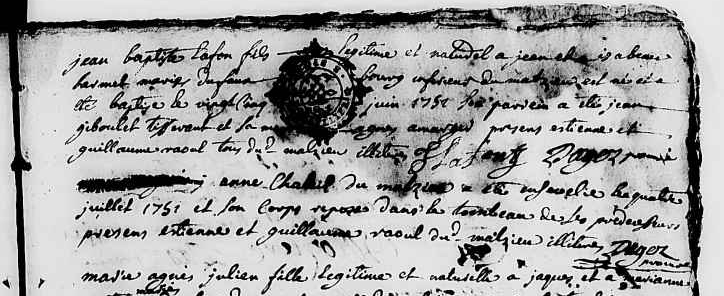 jean baptiste lafon fils legitime et naturel a jean et a isabeau
harmet mariés du faux bourg inferieur du malzieu est né et a
eté baptisé le vingt cinq juin 1751 son parrien a eté jean
giboulet tisserant et sa agnes presens estienne et
guillaume raoul tous du d. malzieu illitérés Dagez
anne Chateil du malzieu a eté ensevelie le quatre
juillet 1751 et son corps repose dans le tombeau de ses predecesseurs
presens estienne et guillaume raoul du d. malzieu illitérés Dagez
marie agnès julien fille legitime et naturelle a jaques et a marianne